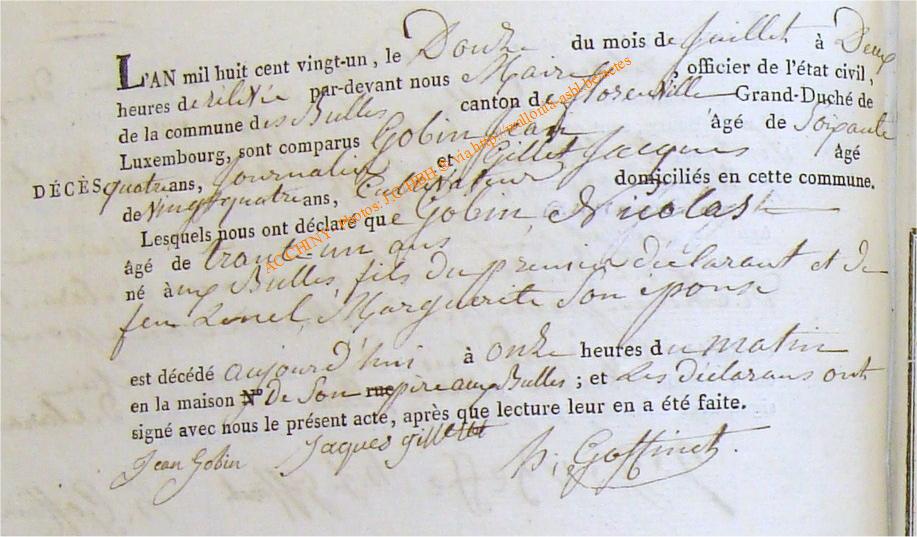 L'AN mil huit cent vingt-un, le Douze du mois de juillet à Deux
heures de rélevée par-devant nous Maire, officier de l'état civil,
de la commune des Bulles canton de florenville Grand-Duché de
Luxembourg, sont comparus Gobin Jean âgé de Soixante
DÉCÈS quatre ans, Journalier et Gillet Jacques âgé
de vingt quatre ans, Cultivateur domiciliés en cette commune.
Lesquels nous ont déclaré que Gobin Nicolas
âgé de trante-un ans
né aux Bulles, fils du premier déclarant et de
feu Marguerite Son épouse
est décédé aujourd'hui à onze heures du matin
en la maison N° de Son rue pere aux Bulles ; et Les déclarans ont
signé avec nous le présent acte, après que lecture leur en a été faite.
Jean Gobin Jaques gillet h. Goffinet
ACCHINY Photos: J.C